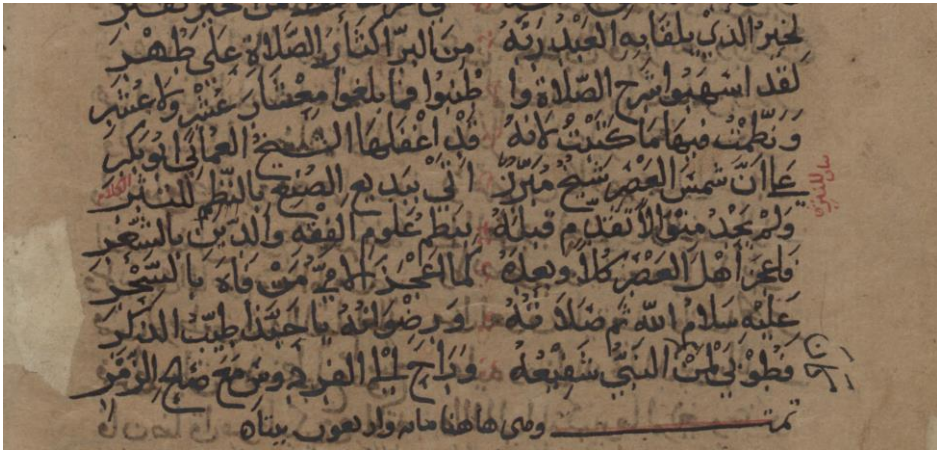 لخير الذي يلقا به العبد ربه من البر اكثار الصلاة على طهر
لقد اسهبوا شرح الصلاة وا طنبوا فما بلغوا معشار عشر ولا عشر
ونظمت فيها ما كتبت لانه قد اغفلها الشيخ العماني ابو بكر
على ان شمس العصر شيخ مبرز اتى ببديع الصنع بالنظم للنثر
ولم يجد منوالا تقدم قبله بنظم علوم الفقه والدين بالشعر
فاعجز اهل العصر كلا وبعده كما اعجز الامي من فاه بالسحر
عليه سلام الله ثم صلاته ورضوانه يا حبذا طيب الذكر
فطوبى لمن النبي شفيعه
تمت وهي هاهنا مايه واربعون بيتا